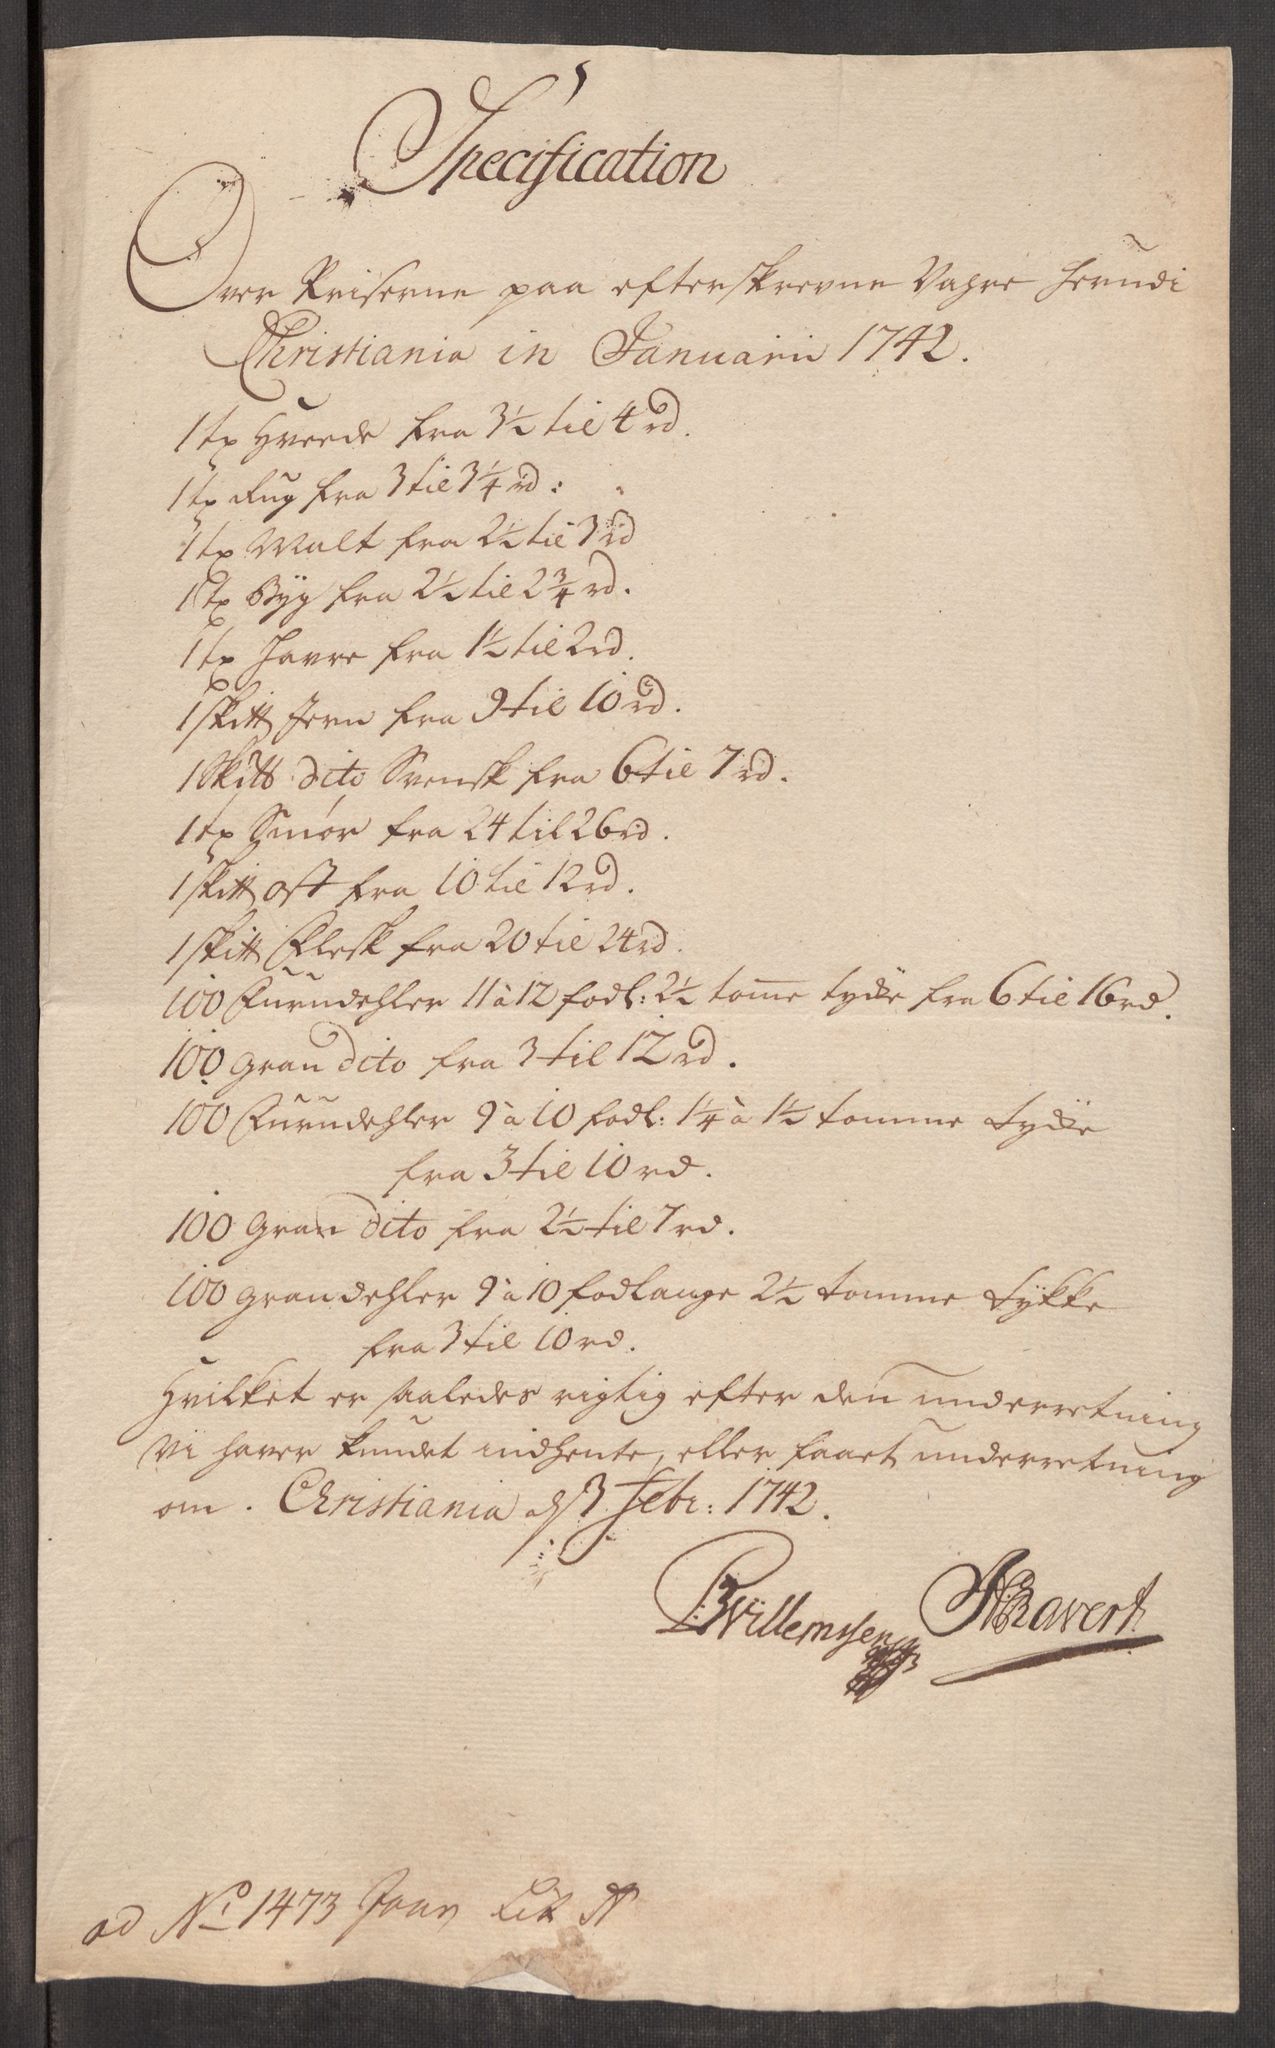 Specification
Over Priserne paa efterskrevne Vahre herudi
Christiania in Januario 1742.
1 tp Hveede fra 3½ til 4 rd.
1 tp Rug fra 3 til 3¼ rd:
1 tp Malt fra 2½ til 3 rd
1 tp Byg fra 2½ til 2¾ rd.
1 tp Havre fra 1½ til 2 rd.
1 skitt Jern fra 9 til 10 rd.
1 Skitt dito Svensk fra 6 til 7 rd.
1 tp Smør fra 24 til 26 rd.
1 skitt Ost fra 10 til 12 rd.
1 skitt Flesk fra 20 til 24 rd.
100 Furudehler 11 à 12 fodl: 2½ tomme tycke fra 6 til 16 rd.
100 gran dito fra 3 til 12 rd.
100 Furudehler 9 à 10 fodl: 1¼ à 1½ tomme tycke
fra 3 til 10 rd.
100 gran dito fra 2½ til 7 rd.
100 grandehler 9 à 10 fodlange 2½ tomme tykke
fra 3 til 10 rd.
Hvilket er saaledes rigtig efter den underretning
vi haver kundet indhente, eller faaet underretning
om. Christiania d 3 Febr: 1742.
BWillemssen NRavert
ad No 1473 Janv Lit N